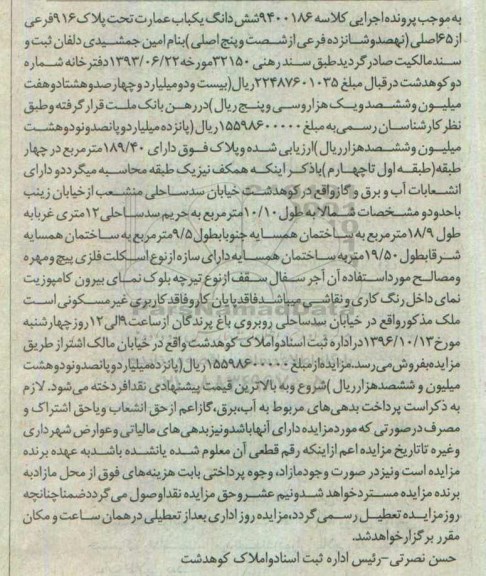 به موجب پرونده اجرایی کلاسه ۹۴۰۰۱۸۶ شش دانگ یکباب عمارت تحت پلاک ۹۱۶ فرعی
از ۶۵ اصلی (نهصدو شانزده فرعی از شصت و پنج اصلی) بنام امین جمشیدی دلفان ثبت و
سند مالکیت صادر گردید طبق سند رهنی ۳۲۱۵۰ مورخه ۱۳۹۳/۰۶/۲۲ دفترخانه شماره
دو کوهدشت در قبال مبلغ ۲۲۴۸۷۶۰۱۰۳۵ ریال (بیست و دو میلیارد و چهار صدو هشتادو هفت
میلیون و ششصد و یک هزار و سی و پنج ریال) در رهن بانک ملت قرار گرفته و طبق
نظر کارشناسان رسمی به مبلغ ۱۵۵۹۸۶۰۰۰۰۰ ریال (پانزده میلیارد و پانصد و نود و هشت
میلیون و ششصد هزار ریال) ارزیابی شده و پلاک فوق دارای ۱۸۹/۴۰ متر مربع در چهار
طبقه (طبقه اول تا چهارم) با ذکر اینکه همکف نیز یک طبقه محاسبه میگردد و دارای
انشعابات آب و برق و گاز واقع در کوهدشت خیابان سد ساحلی منشعب از خیابان زینب
با حدود و مشخصات شمالا به طول ۱۰/۱۰ متر مربع به حریم سد ساحلی ۱۲ متری غربا به
طول ۱۸/۹ متر مربع به ساختمان همسایه جنوبا بطول ۹/۵ متر مربع به ساختمان همسایه
شرقا بطول ۱۹/۵۰ متر به ساختمان همسایه دارای سازه از نوع اسکلت فلزی پیچ و مهره
و مصالح مورد استفاده آن آجر سفال سقف از نوع تیرچه بلوک نمای بیرون کامپوزیت
نمای داخل رنگ کاری و نقاشی میباشد فاقد پایان کار و فاقد کاربری غیر مسکونی است
ملک مذکور واقع در خیابان سد ساحلی روبروی باغ پرندگان از ساعت ۹ الی ۱۲ روز چهارشنبه
مورخ ۱۳۹۶/۱۰/۱۳ در اداره ثبت اسناد و املاک کوهدشت واقع در خیابان مالک اشتر از طریق
مزایده بفروش می رسد. مزایده از مبلغ ۱۵۵۹۸۶۰۰۰۰۰ ریال (پانزده میلیارد و پانصد و نود و هشت
میلیون و ششصد هزار ریال) شروع و به بالاترین قیمت پیشنهادی نقدا فروخته می شود. لازم
به ذکر است پرداخت بدهی های مربوط به آب، برق، گاز اعم از حق انشعاب و یا حق اشتراک و
مصرف در صورتی که مورد مزایده دارای آنها باشد و نیز بدهی های مالیاتی و عوارض شهرداری
و غیره تا تاریخ مزایده اعم از اینکه رقم قطعی آن معلوم شده یا نشده باشد به عهده برنده
مزایده است و نیز در صورت وجود مازاد، وجوه پرداختی بابت هزینه های فوق از محل مازاد به
برنده مزایده مسترد خواهد شد و نیم عشر و حق مزایده نقدا وصول می گردد ضمنا چنانچه
روز مزایده تعطیل رسمی گردد، مزایده روز اداری بعد از تعطیلی در همان ساعت و مکان
مقرر برگزار خواهد شد.
حسن نصرتی – رئیس اداره ثبت اسناد و املاک کوهدشت